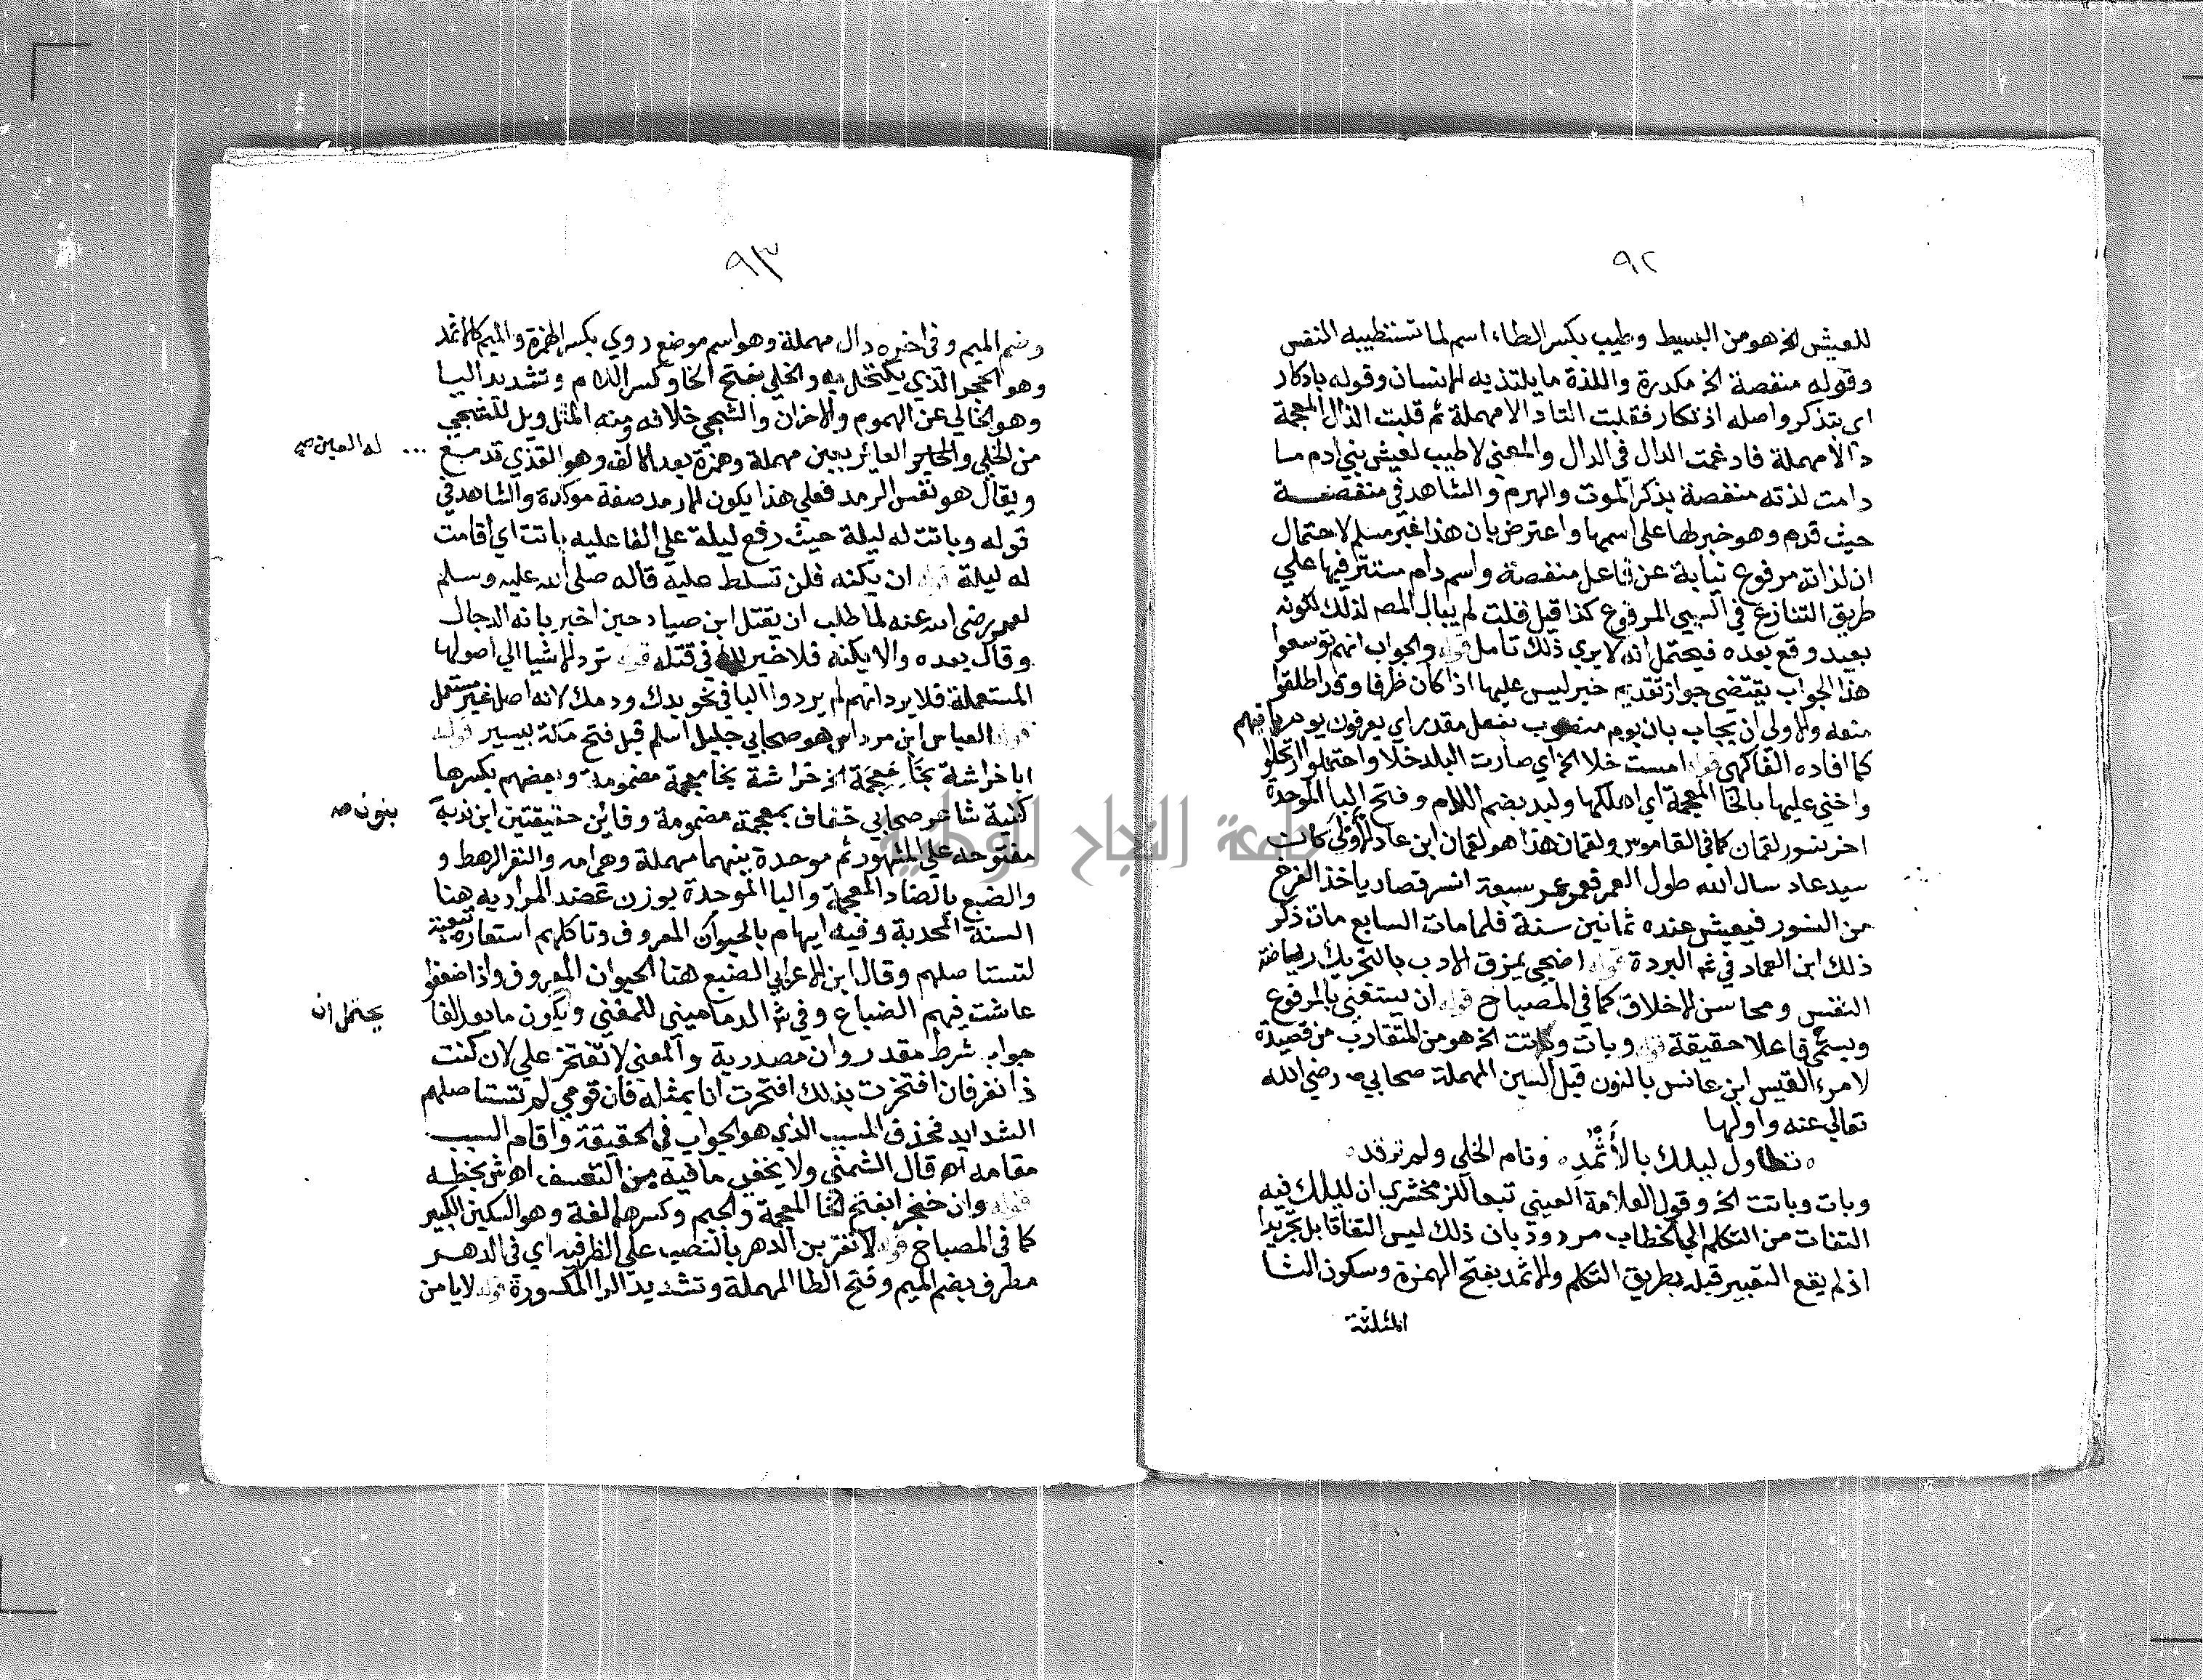 ٩٢
للعيش الخ هو من البسيط وطيب بكسر الطاء اسم لما تستطيبه النفس
وقوله منغصة الخ مكدرة واللذة ما يلتذ به الانسان وقوله بادكار
اي بتذكر واصله اذتكار فقلبت التا دالا مهملة ثم قلبت الذال المعجمة
دالا مهملة فادغمت الدال في الدال والمعني لا طيب لعيش بني ادم ما
دامت لذته منغصة بذكر الموت والهرم والشاهد في منغصة
حيث قدم وهو خبر لها على اسمها واعترض بان هذا غير مسلم لاحتمال
ان لذاته مرفوع نيابة عن فاعل منغصة واسم دام مستتر فيها علي
طريق التنازع في السببي المرفوع كذا قيل قلت لم يبال المص لذلك لكونه
بعيد وقع بعده فيحتمل انه لا يري ذلك تامل قوله والجواب انهم توسعوا
هذا الجواب يقتضي جواز تقديم خبر ليس عليها اذا كان ظرفا وقد اطلقوا
منعه والاولى ان يجاب بان يوم منصوب بفعل مقدر اي يعرفون يوم ياتيهم
كما افاده الفاكهي قوله امست خلا الخ اي صارت البلد خلا واحتملوا ارتحلوا
واخني عليها بالخا المعجمة اي اهلكها ولبد بضم اللام وفتح البا الموحدة
اخر نسور لقمان كما في القاموس ولقمان هذا هو لقمان ابن عاد الاولى كان
سيد عاد سال الله طول العمر فعمر عمر سبعة انسر فصار ياخذ الفرخ
من النسور فيعيش عنده ثمانين سنة فلما مات السابع مات ذكر
ذلك ابن العماد في شر البردة قوله اضحي يمزق الادب بالتحريك رياضة
النفس ومحاسن الاخلاق كما في المصباح قوله ان يستغني بالمرفوع
ويسمى فاعلا حقيقة قوله وبات وباتت الخ هو من المتقارب من قصيدة
لامرء القيس ابن عانس بالنون قبل السين المهملة صحابي رضي الله
تعالي عنه واولها
تطاول ليلك بالأثمد ونام الخلي ولم ترقد
وبات وباتت الخ وقول العلامة العيني تبعا للزمخشري ان ليلك فيه
التفات من التكلم الي الخطاب مردود بان ذلك ليس التفاتا بل تجريدا
اذ لم يقع التعبير قبله بطريق التكلم والاثمد بفتح الهمزة وسكون الثا
المثلثة
٩٣
وضم الميم وفي اخره دال مهملة وهو اسم موضع روي بكسر الهمزة والميم كالاثمد
وهو الحجر الذي يكتحل به والخلي بفتح الخا وكسر اللام وتشديد اليا
وهو الخالي عن الهموم والاحزان والشجي خلافه ومنه المثل ويل للشجي
من الخلي والعائر بعين مهملة وهمزة بعد الالف وهو القذي تدمع
له العين صح
ويقال هو نفس الرمد فعلي هذا يكون الارمد صفة موكدة والشاهد في
قوله وباتت له ليلة حيث رفع ليلة علي الفاعليه باتت اي اقامت
له ليلة قوله ان يكنه فلن تسلط عليه قاله صلى الله عليه وسلم
لعمر رضي الله عنه لما طلب ان يقتل ابن صياد حين اخبر بانه الدجال
وقال بعده والا يكنه فلا خير لك في قتله قوله ترد الاشيا الي اصولها
المستعملة فلا يرد انهم لم يردوا اليا في نحو يدك ودمك لانه اصل غير مستعمل
قوله العباس ابن مرداس هو صحابي جليل اسلم قبل فتح مكة بيسير قوله
ابا خراشة بخا معجمة الخ خراشة بخا معجمة مضمومة وبعضهم بكسرها
كنية شاعر صحابي خفاف بمعجمة مضمومة وفائين خفيفتين ابن ندبة
بنون صح
مفتوحه علي المشهور ثم موحدة بينهما مهملة وهي امه والنفر الرهط و
والضبع بالضاد المعجمة والبا الموحدة بوزن عضد المراد به هنا
السنة المجدبة وفيه ايهام بالحيوان المعروف وتاكلهم استعارة تبعية
لتستاصلهم وقال ابن الاعرابي الضبع هنا الحيوان المعروف واذا ضعفوا
عاشت فيهم الضباع وفي شر الدماميني للمغني ويكون ما بعد الفا
يحتمل ان
جواب شرط مقدر وان مصدرية والمعني لا تفتخر علي لان كنت
ذا نفر فان افتخرت بذلك افتخرت انا بمثله فان قومي لم تستاصلهم
الشدايد فحذف المسبب الذي هو الجواب في الحقيقة واقام السبب
مقامه اه قال الشمني ولا يخفي ما فيه من التعسف اه ش بخطه
قوله وان خنجرا بفتح الخا المعجمة والجيم وكسرهما لغة وهو السكين الكبير
كما في المصباح قوله لا تقربن الدهر بالنصب علي الظرفيه اي في الدهر
مطرف بضم الميم وفتح الطا المهملة وتشديد الرا المكسورة قوله لا يامن
جامعة النجاح الوطنية